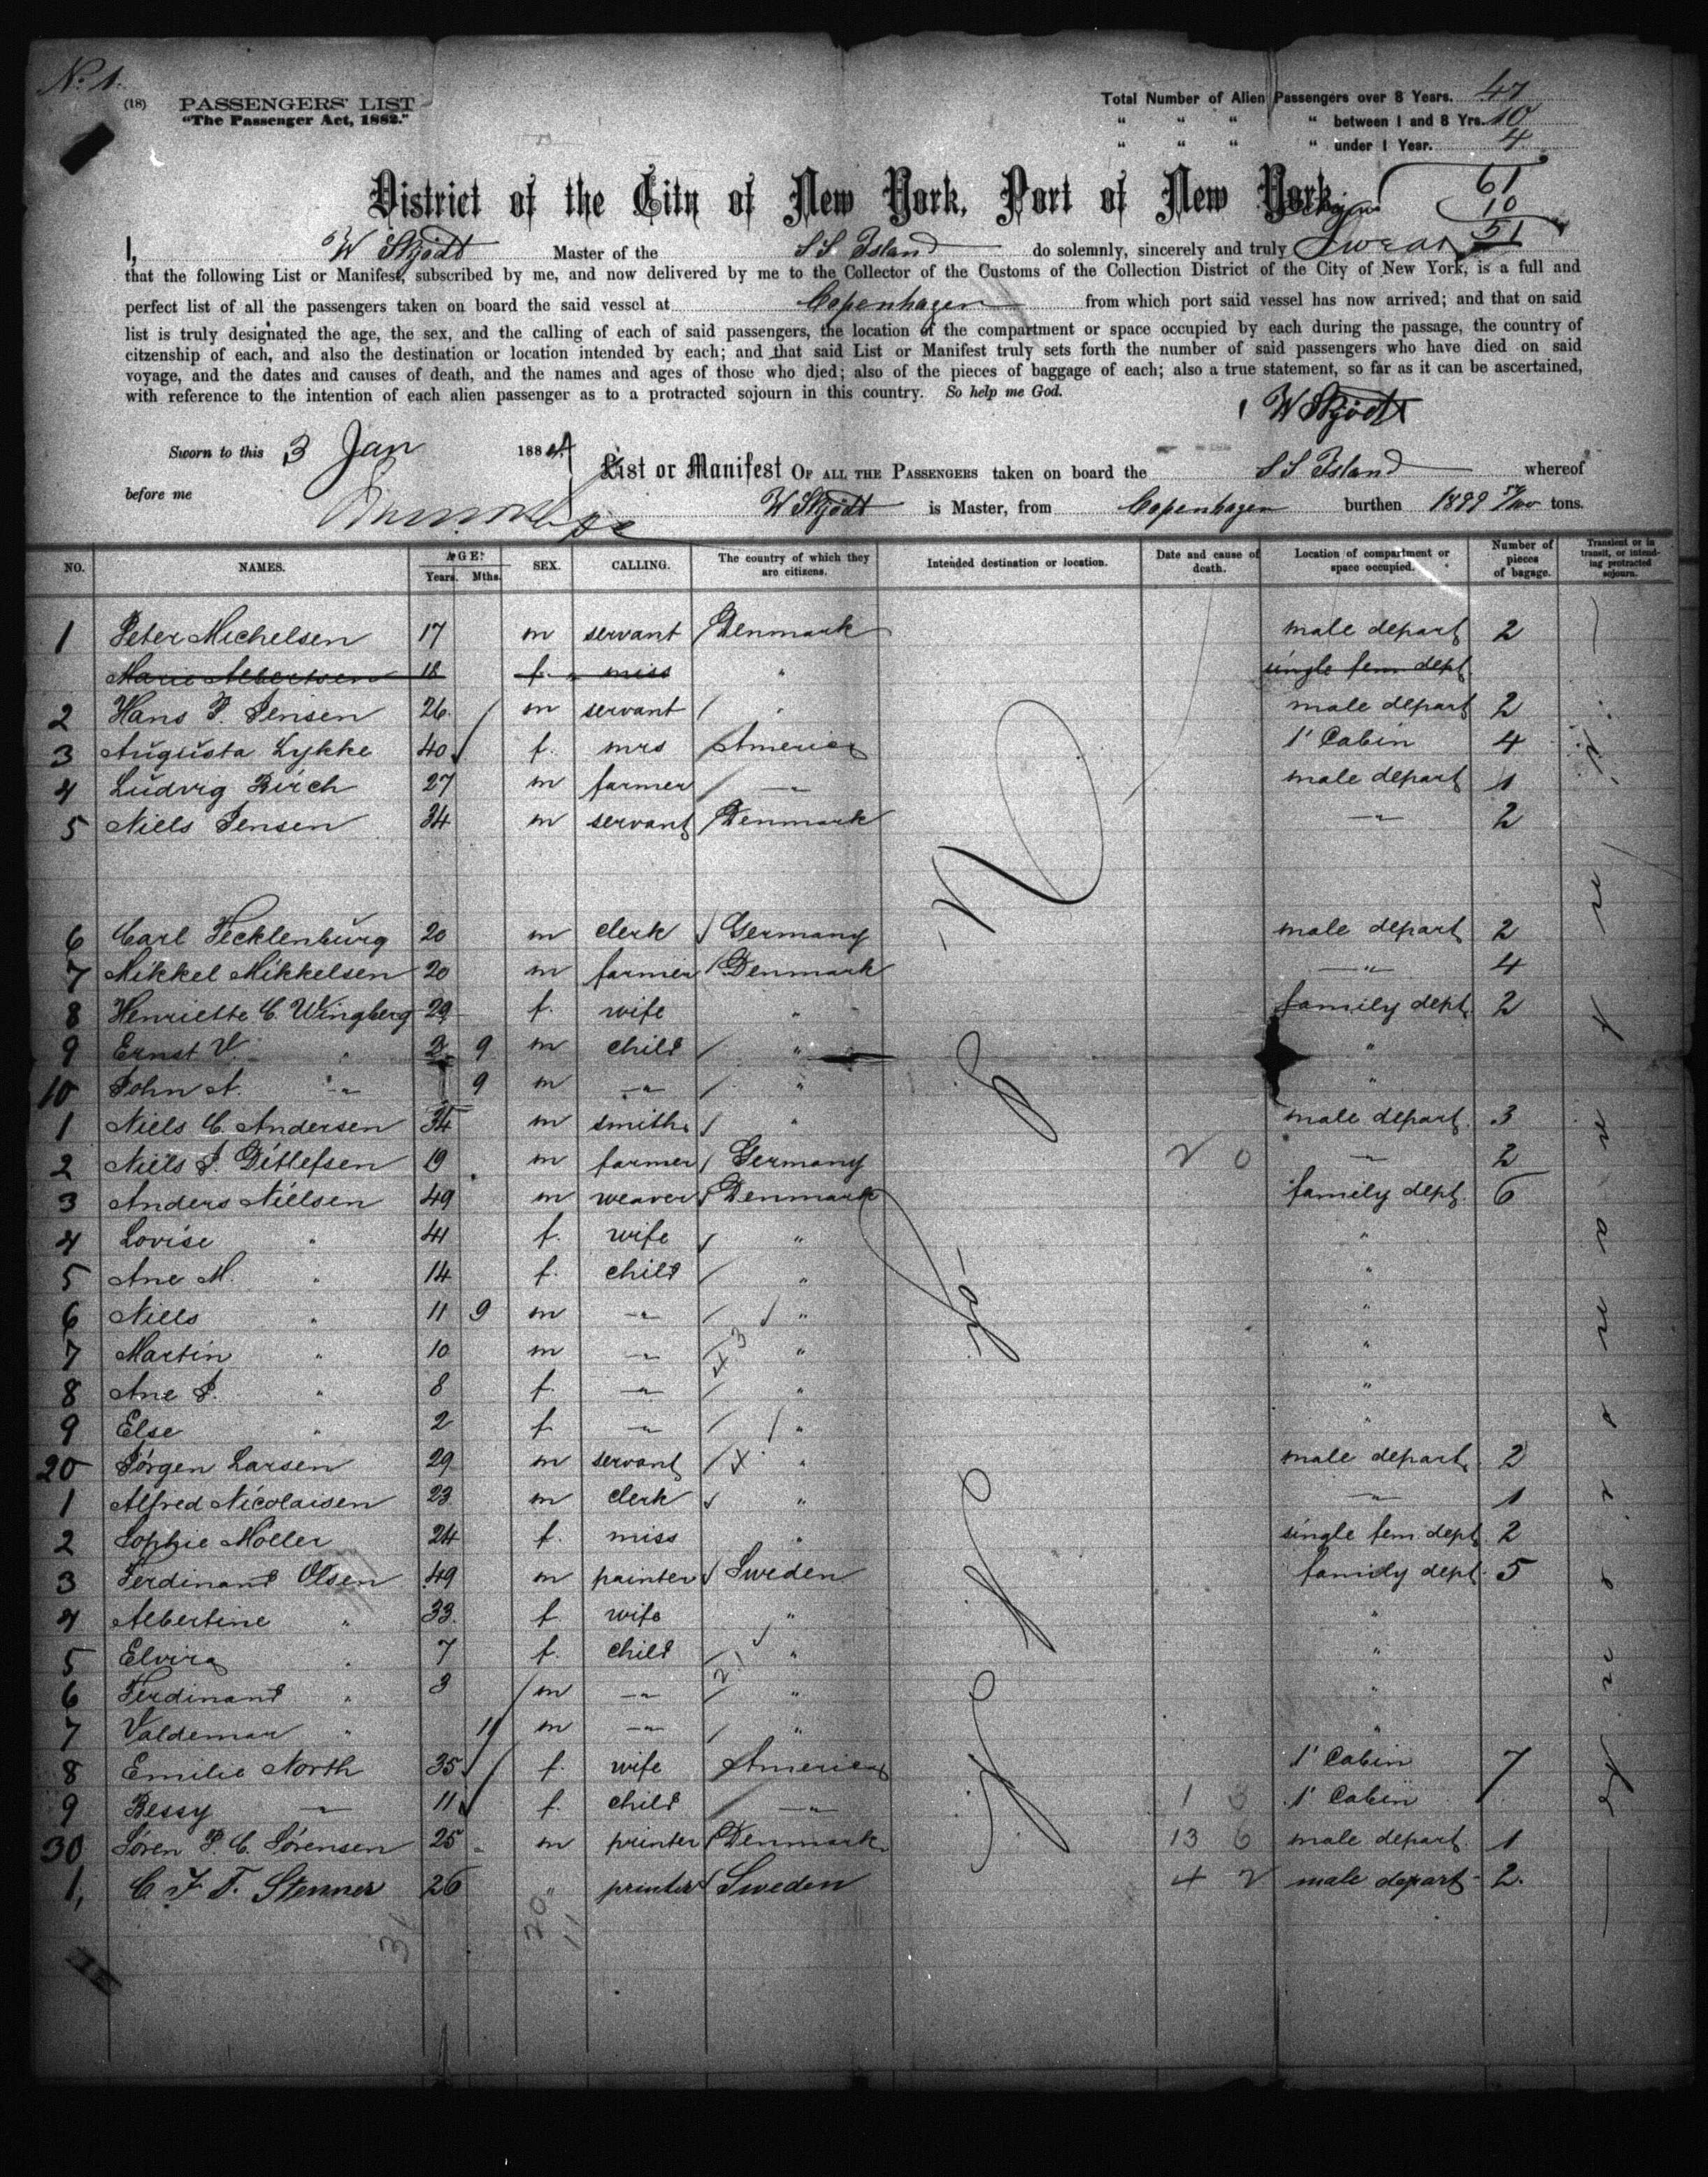 No. 1.
(18) PASSENGERS' LIST
"The Passenger Act, 1882."
Total Number of Alien Passengers over 8 Years. 47
" " " " between 1 and 8 Yrs. 10
" " " " under 1 Year. 4
61
10
51
District of the City of New York, Port of New York.
I, W Skjödt Master of the SS Island do solemnly, sincerely and truly Swear
that the following List or Manifest, subscribed by me, and now delivered by me to the Collector of the Customs of the Collection District of the City of New York, is a full and
perfect list of all the passengers taken on board the said vessel at Copenhagen from which port said vessel has now arrived; and that on said
list is truly designated the age, the sex, and the calling of each of said passengers, the location of the compartment or space occupied by each during the passage, the country of
citzenship of each, and also the destination or location intended by each; and that said List or Manifest truly sets forth the number of said passengers who have died on said
voyage, and the dates and causes of death, and the names and ages of those who died; also of the pieces of baggage of each; also a true statement, so far as it can be ascertained,
with reference to the intention of each alien passenger as to a protracted sojourn in this country. So help me God.
W Skjödt
Sworn to this 3 Jan 1884
before me
List or Manifest OF ALL THE PASSENGERS taken on board the SS Island whereof
W Skjödt is Master, from Copenhagen burthen 1899 57/100 tons.
NO. NAMES. AGE. Years. Mths. SEX. CALLING. The country of which they are citizens. Intended destination or location. Date and cause of death. Location of compartment or space occupied. Number of pieces of bagage. Transient or in transit, or intending protracted sojourn.
1 Peter Michelsen 17 m servant Denmark male depart 2
Marie Albertsen 18 f. miss " single fem dept
2 Hans P. Jensen 26 m servant " male depart 2
3 Augusta Lykke 40 f. mrs America 1' Cabin 4
4 Ludvig Birch 27 m farmer —"— male depart 1
5 Niels Jensen 34 m servant Denmark —"— 2
6 Carl Tecklenburg 20 m clerk Germany male depart 2
7 Mikkel Mikkelsen 20 m farmer Denmark —"— 4
8 Henriette C. Wingberg 29 f. wife " family dept. 2
9 Ernst V. " 2 9 m child " "
10 John A. —"— 9 m —"— " "
1 Niels C. Andersen 34 m smith " male depart. 3
2 Niels J. Ditlefsen 19 m farmer Germany 2 0 —"— 2
3 Anders Nielsen 49 m weaver Denmark family dept. 6
4 Lovise " 41 f. wife " "
5 Ane M. " 14 f. child " "
6 Niels " 11 9 m —"— " "
7 Martin " 10 m —"— " "
8 Ane P. " 8 f. —"— " "
9 Else " 2 f. —"— " "
20 Jörgen Larsen 29 m servant " male depart. 2
1 Alfred Nicolaisen 23 m clerk " —"— 1
2 Sophie Möller 24 f. miss " single fem. dept. 2
3 Ferdinand Olsen 49 m painter Sweden family dept. 5
4 Albertine " 33 f. wife " "
5 Elvira " 7 f. child " "
6 Ferdinand " 3 m —"— " "
7 Valdemar " 11 m —"— " "
8 Emilie North 35 f. wife America 1' Cabin 7
9 Bessy —"— 11 f. child —"— 1 3 1' Cabin
30 Sören P. C. Sörensen 25 m printer Denmark 13 6 male depart. 1
1, C F T. Stenner 26 " printer Sweden 4 2 male depart 2.
31 20
11